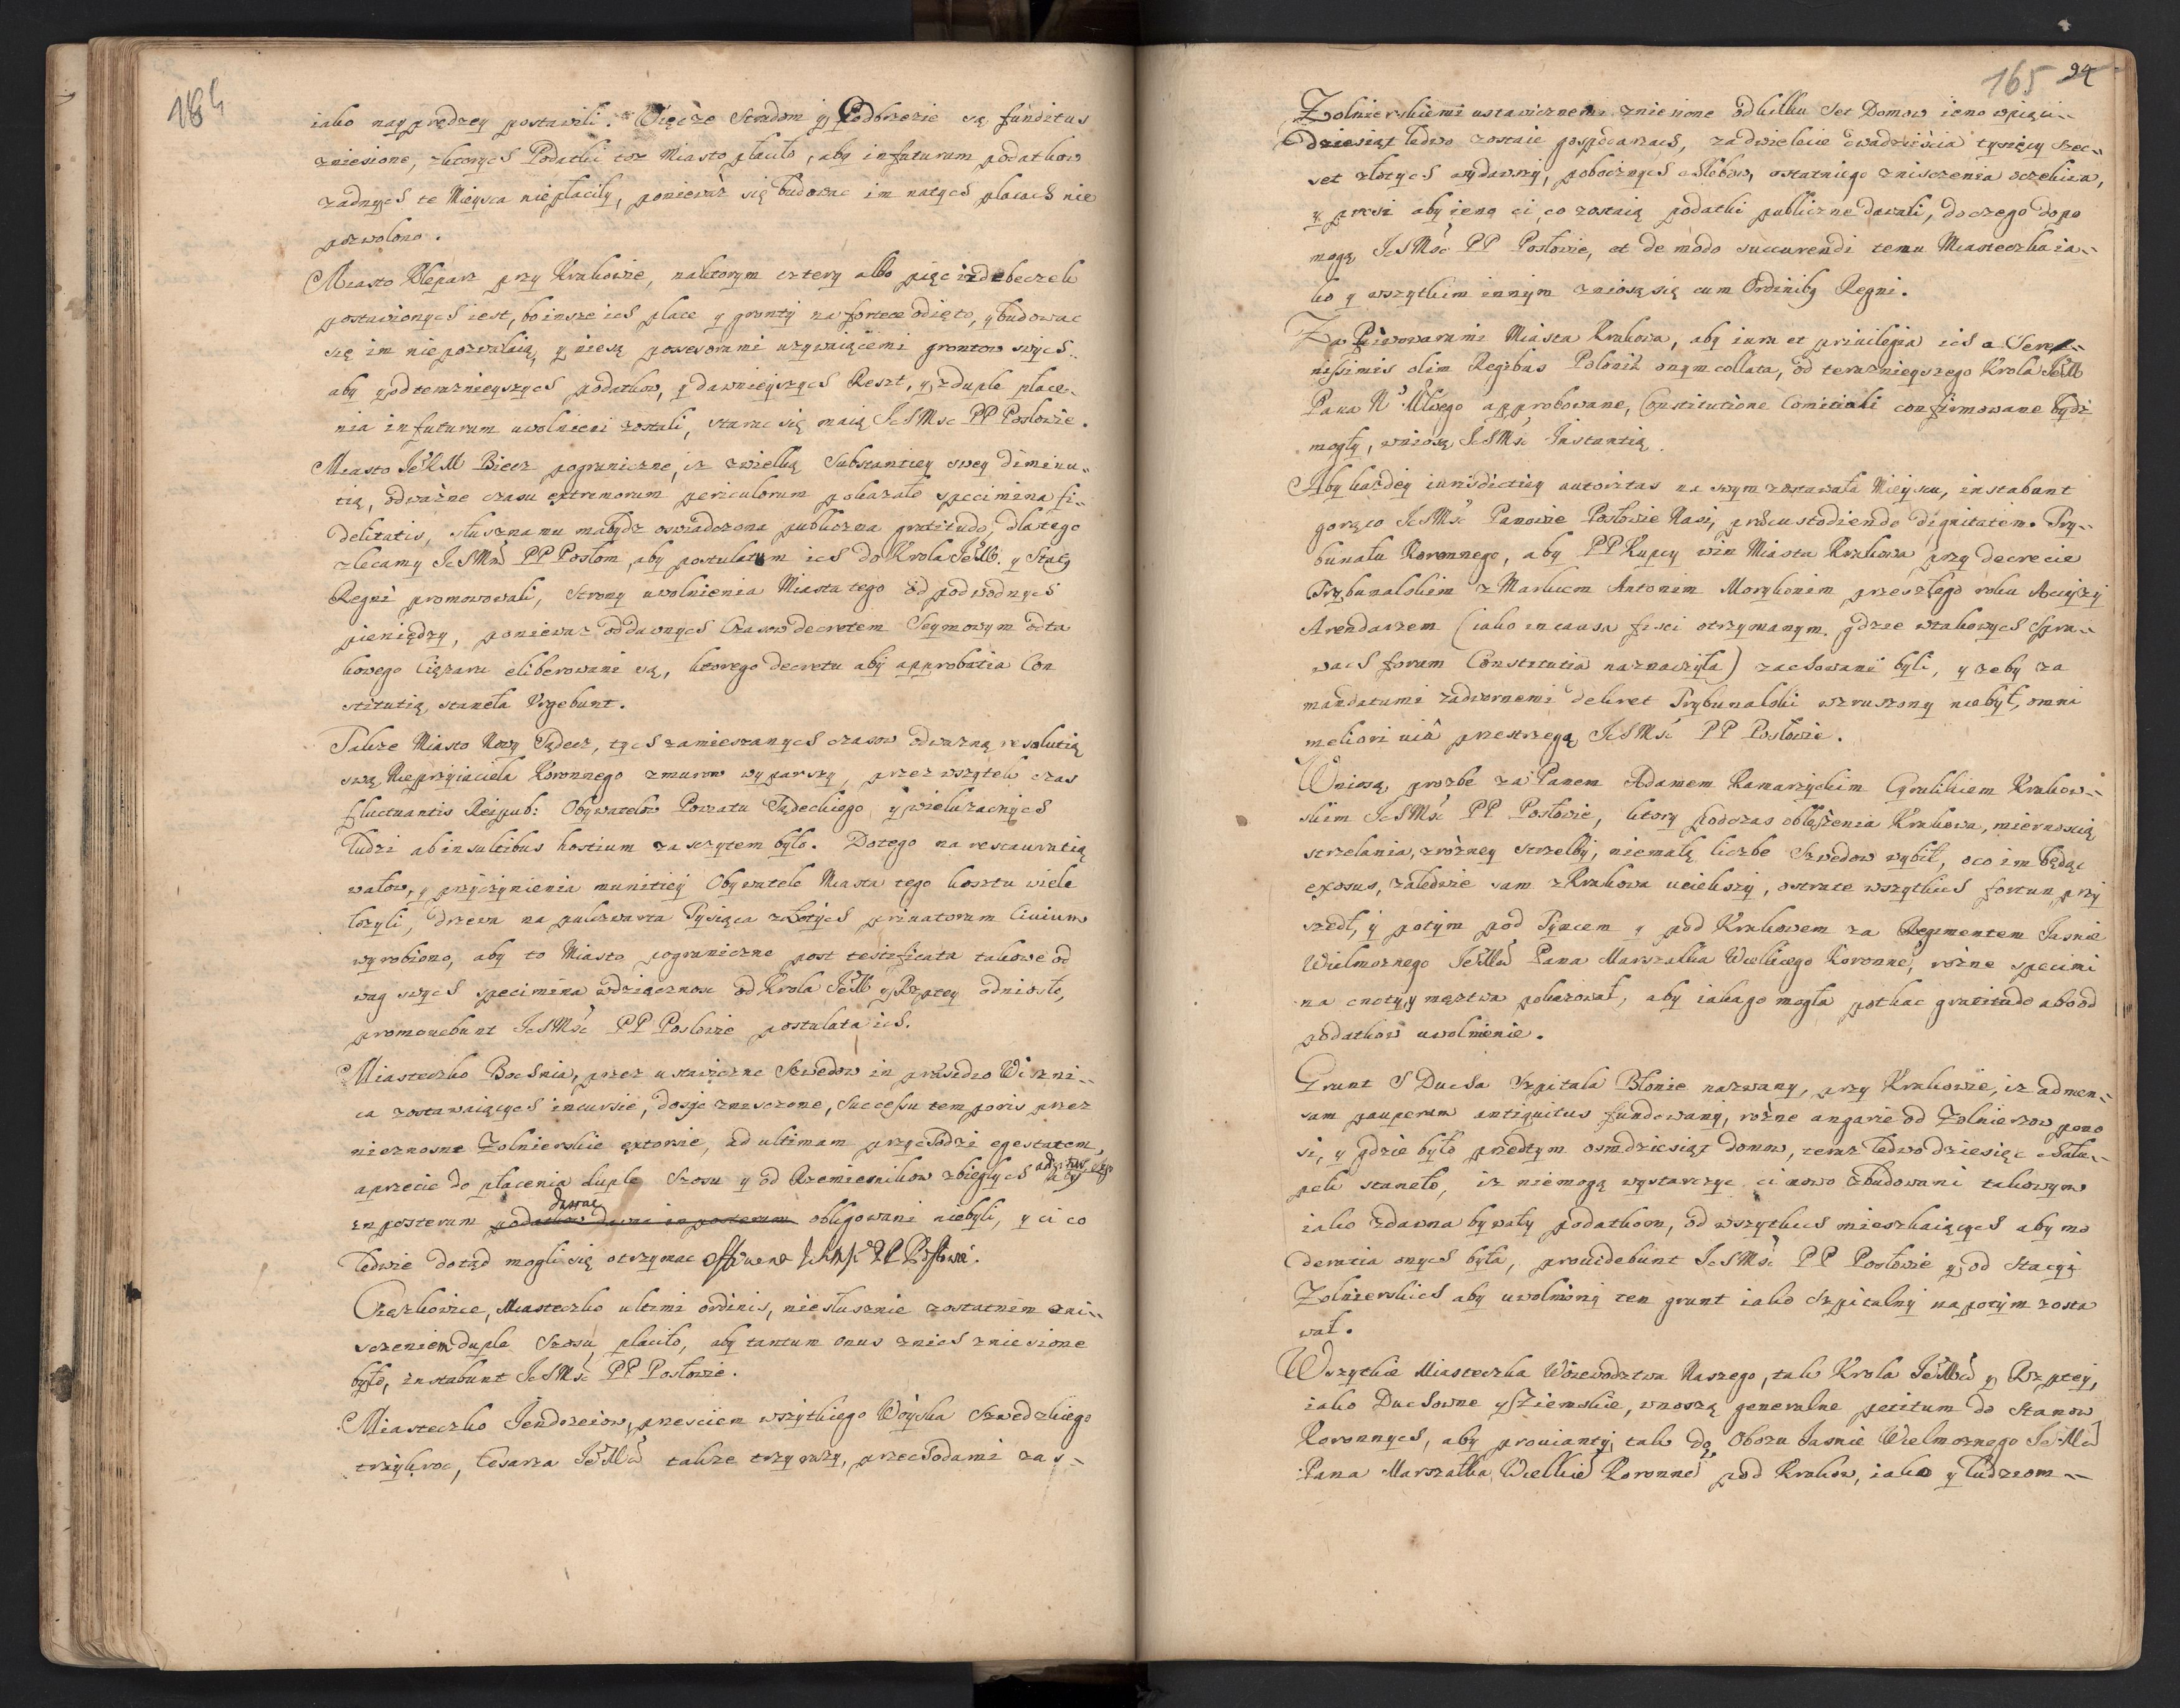 164
iako nayprędzey postawili. Więc że Stradom y Podbrzezie są funditus
zniesione, z ktorych Podatki toż Miasto płaciło, aby in futurum podatkow
zadnych te Mieysca niepłaciły, ponieważ się budować im natych placach nie
pozwolono.
Miasto Klepasz przy Krakowie, naktorym cztery albo pięć izdebeczek
postawionych iest, bo insze ich place y gronty na fortece odięto, y budowac
się im niepozwalaią, y niesą possesorami uzywaiącemi grontow swych
aby y od teraznieyszych podatkow, y dawnieyszych Reszt, y zduple płace-
nia in futurum uwolnieni zostali, starac się maią IchMsc PP Posłowie.
Miasto JeKM Biecz pograniczne, iz zwielką Substantiey swey diminu-
tią, odważne czasu extremorum periculorum pokazało specimina fi-
delitatis, słuszna mu ma bydz oswiadczona publiczna gratitudo, dlatego
zlecamy IchMm PP Posłom, aby postulatum ich do Krola JeM. y Stanow
Regni promowowali, strony uwolnienia Miasta tego od podwodnych
pieniędzy, poniewaz od dawnych Czasow decretem Seymowym od ta
kowego Ciężaru eliberowani są, ktorego decretu aby approbatia Con
stitutią, staneła Urgebunt.
Także Miasto Nowy Sądecz, tych zamieszanych czasow odwazną resolutią
swą Nieprzyiaciela Koronnego z murow wyparszy, przez wszytek czas
fluctuantis Reipub: Obywatelow Powiatu Sądeckiego y wielu zacnych
ludzi ab insultibus hostium zasczytem było. Do tego na restauratią
wałow, y przyczynienia munitiey Obywatele Miasta tego kosztu wiele
łozyli, drzewa na pulwarku Tysiąca złotych priuatorum Ciuium
wyrobiono, aby to Miasto pograniczne post testificata takowe od
wag swych specimina wdzięcznosc od Krola JeM y Rzptey odniosło,
promouebunt IchMsc PP Posłowie postulata ich.
Miasteczko Bochnia, przez ustawiczne Szwedow in praesidio Wisni-
ca zostawaiących incursie, dosyc znisczone, successu temporis przez
nieznosne Zołnierskie extorsie, ad ultimam przychodzi egestatem,
aprzecie do płacenia duple Szosu y od Rzemiesnikow zbiegłych
in posterum dawac obligowani niebyli, y ci co
ledwie dotąd mogli się otrzymac IchMsc PP Posłowie.
Cięszkowice, Miasteczko ultimi ordinis, niesłusznie zostatnim zni-
sczeniem duple Szosu płaciło, aby tantum onus znich zniesione
było, instabunt IchMsc PP Posłowie.
Miasteczko Jendrzeiow, przesciem wszytkiego Woyska Szwedzkiego
trzykroc, Cesarza JeMci takze trzy razy, przechodami zas-
165 94
Zołnierskiemi ustawicznemi zniesione od kilku Set Domow ieno wpięci-
dziesiąt ledwo zostaie gospodarzach, zadwielecie dwadziescia tysięcy szec-
set złotych wydawszy, pobocznych chlebow, ostatniego znisczenia oczekiwa,
y prosi aby ieno ci, co zostaią podatki publiczne dawali, do czego dopo
mogą IchMsc PP Posłowie, et de modo succurendi temu Miasteczku ia-
ko y wszytkim innym zniosą się cum Ordinibq Regni.
Za Piwowarami Miasta Krakowa, aby iura et priuilegia ich a Sere-
nissimis olim Regibus Poloniæ onym collata, od teraznieyszego Krola JeM
Pana N. Młwego approbowane, Constitutione Comitiali confirmowane bydz
mogły, wniosą IchMsc Instantią.
Aby kazdey iurisdictiey autoritas na swym zostawała Mieyscu, instabunt
gorąco IchMsc Panowie Posłowie Nasi, præcustodiendo dignitatem Try-
bunału Koronnego, aby PP Kupcy win Miasta Krakowa przy decrecie
Trybunalskim z Markiem Antonim Morykonim przeszłego roku Akcyzy
Arendarzem (iako in causa fisci otrzymanym, gdzie wtakowych Spra-
wach forum Constitutia naznaczyła) zachowani byli, y zeby za
mandatami zadwornemi dekret Trybunalski wzruszony niebył, omni
meliori uiâ przestrzegą IchMsc PP Posłowie.
Wniosą prozbe za Panem Adamem Kamarzyckim Cyrulikiem Krakow-
skim IchMsc PP Posłowie, ktory podczas oblężenia Krakowa, miernoscią
strzelania, zrożney strzelby, niemałą liczbe Szwedow wybił, o co im będąc
exosus, zaledwie sam zKrakowa uciekszy, ostrate wszytkich fortun przy
szedł, y potym pod Tyncem y pod Krakowem za Regimentem Jasnie
Wielmoznego JeMci Pana Marszałka Wielkiego Koronne, różne specimi
na cnoty y męztwa pokazował, aby iaka go mogła potkac gratitudo abo od
podatkow uwolnienie.
Grunt S Ducha Szpitala Błonie nazwany, przy Krakowie, iz ad men-
sam pauperum antiquitus fundowany, rożne angarie od Zołnierzow pono
si, y gdzie było przedtym osmdziesiąt domow, teraz ledwo dziesięc chału-
pek staneło, iz niemogą wystarczyc ci nowo zbudowani takowym
iako zdawna bywały podatkom, od wszytkich mieszkaiących aby mo
deratia onych była, prouidebunt IchMsc PP Posłowie y od Stacyi
Zołnierskich aby uwolniony ten grunt iako Szpitalny napotym zosta
wał.
Wszytkie Miasteczka Woiewodztwa Naszego, tak Krola JeMci y Rzptey,
iako Duchowne y Ziemskie, wnoszą generalne petitum do Stanow
Koronnych, aby prouianty, tak do Obozu Jasnie Wielmoznego JeMci
Pana Marszałka Wielkie Koronne pod Krakow, iako y ludziom